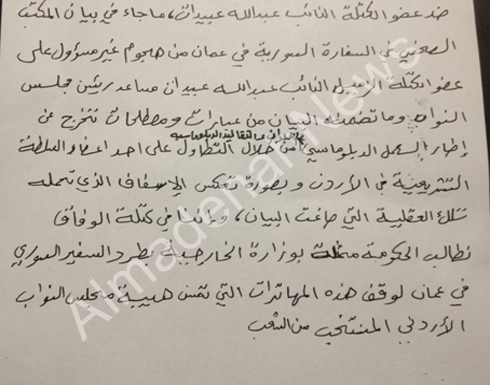 ضد عضو الكتلة النائب عبدالله عبيدات، ما جاء في بيان المكتب
الصحفي في السفارة السورية في عمان من هجوم غير مسؤول على
عضو الكتلة الزميل النائب عبدالله عبيدات مساعد رئيس مجلس
النواب وما تضمنه البيان من عبارات ومصطلحات تخرج عن
إطار العمل الدبلوماسي من خلال التطاول على احد اعضاء السلطة
التشريعية في الأردن وبصورة تعكس الإسفاف الذي تحمله
تلك العقلية التي صاغت البيان، وإننا في كتلة الوفاق
نطالب الحكومة ممثلة بوزارة الخارجية بطرد السفير السوري
في عمان لوقف هذه المهاترات التي تمس هيبة مجلس النواب
الأردني المنتخب من الشعب
Almadenah News